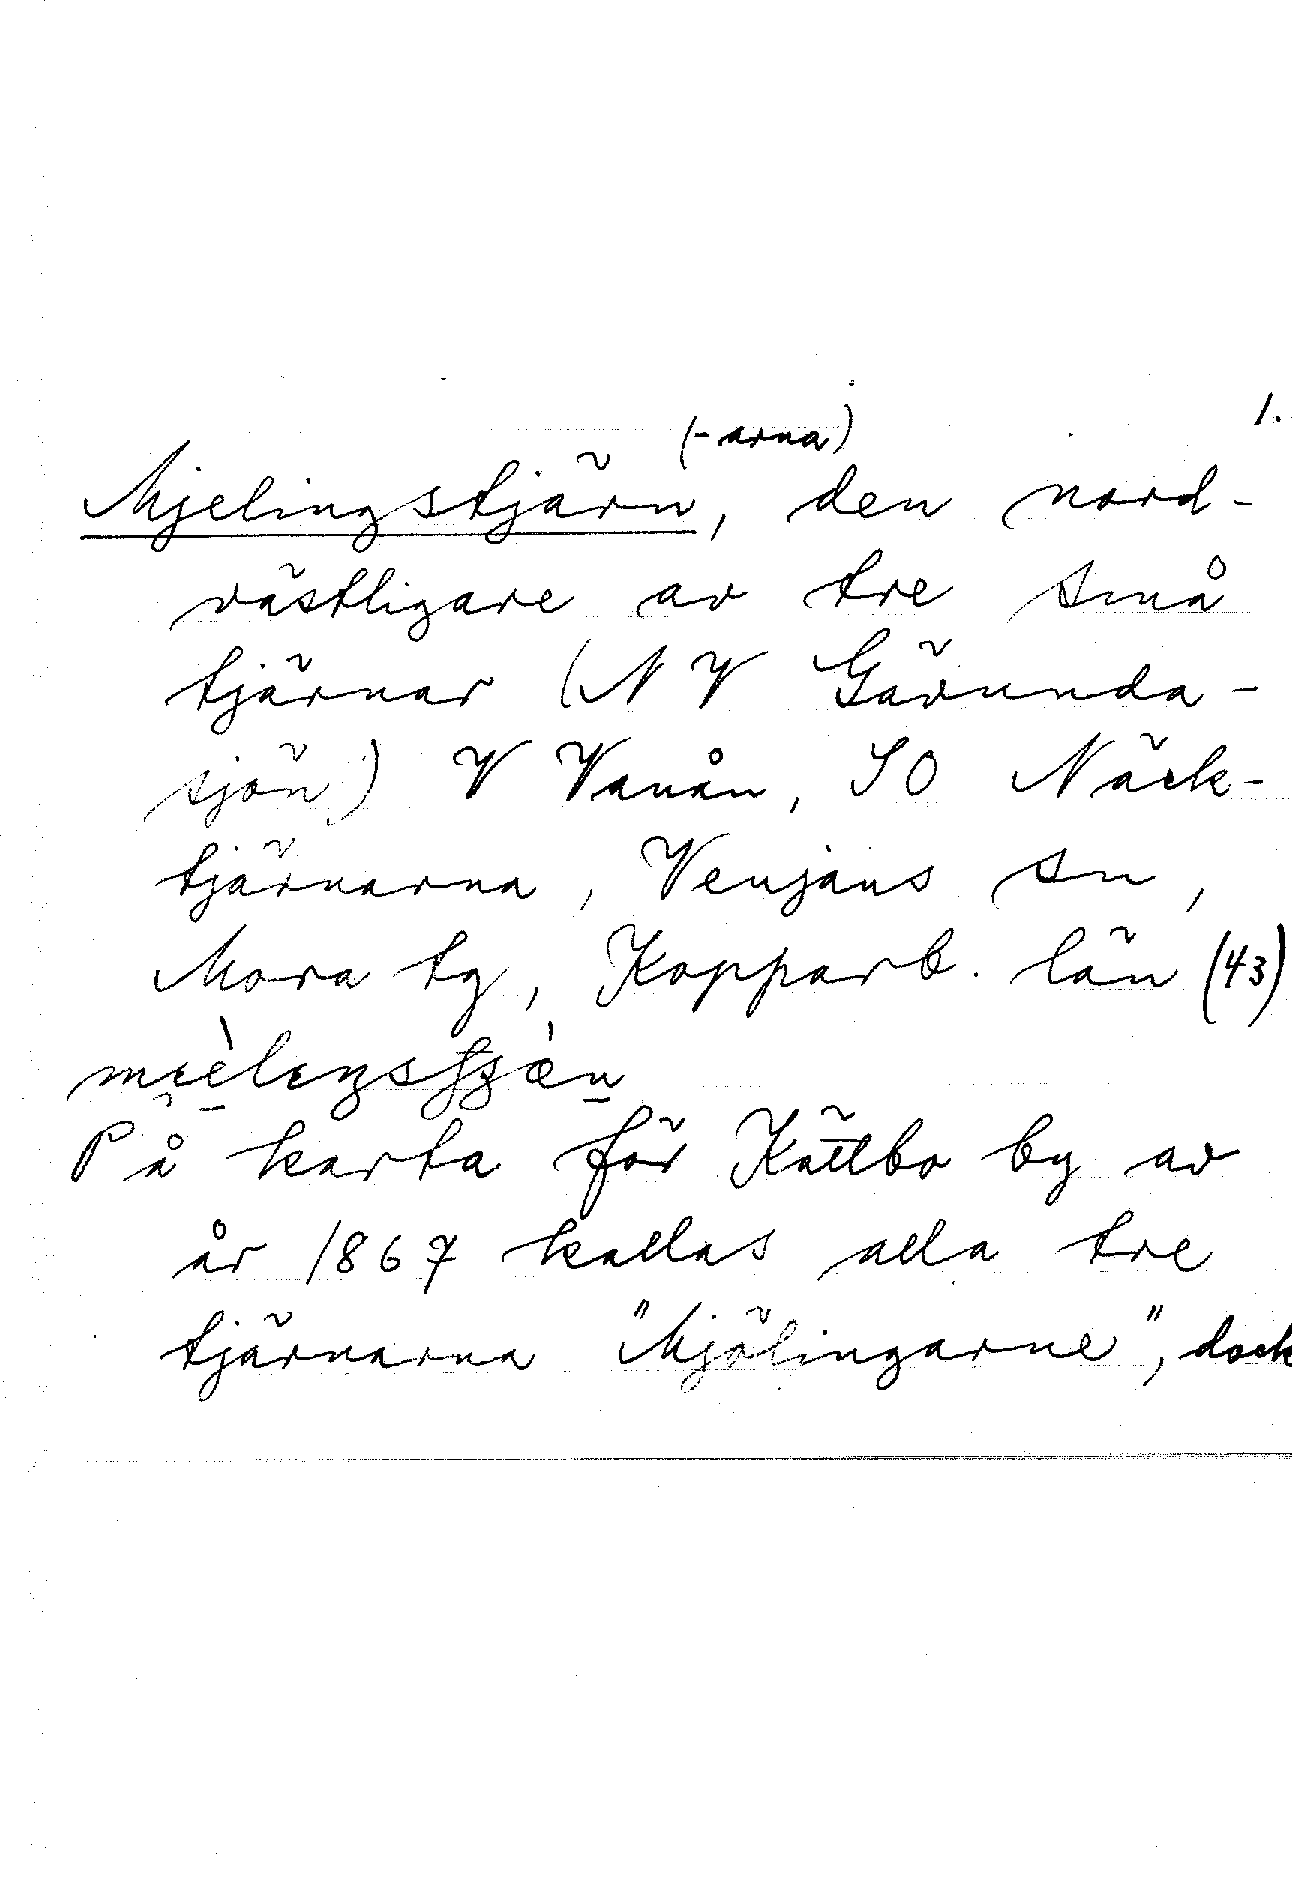 1.
(-arna)
Mjelingstjärn, den nord-
västligare av tre små
tjärnar (NV Gävunda-
sjön) V Vanån, SO Näck-
tjärnarna, Venjans sn,
Mora tg, Kopparb. län (43)
På karta för Kättbo by av
år 1867 kallas alla tre
tjärnarna "Mjölingarne", dock